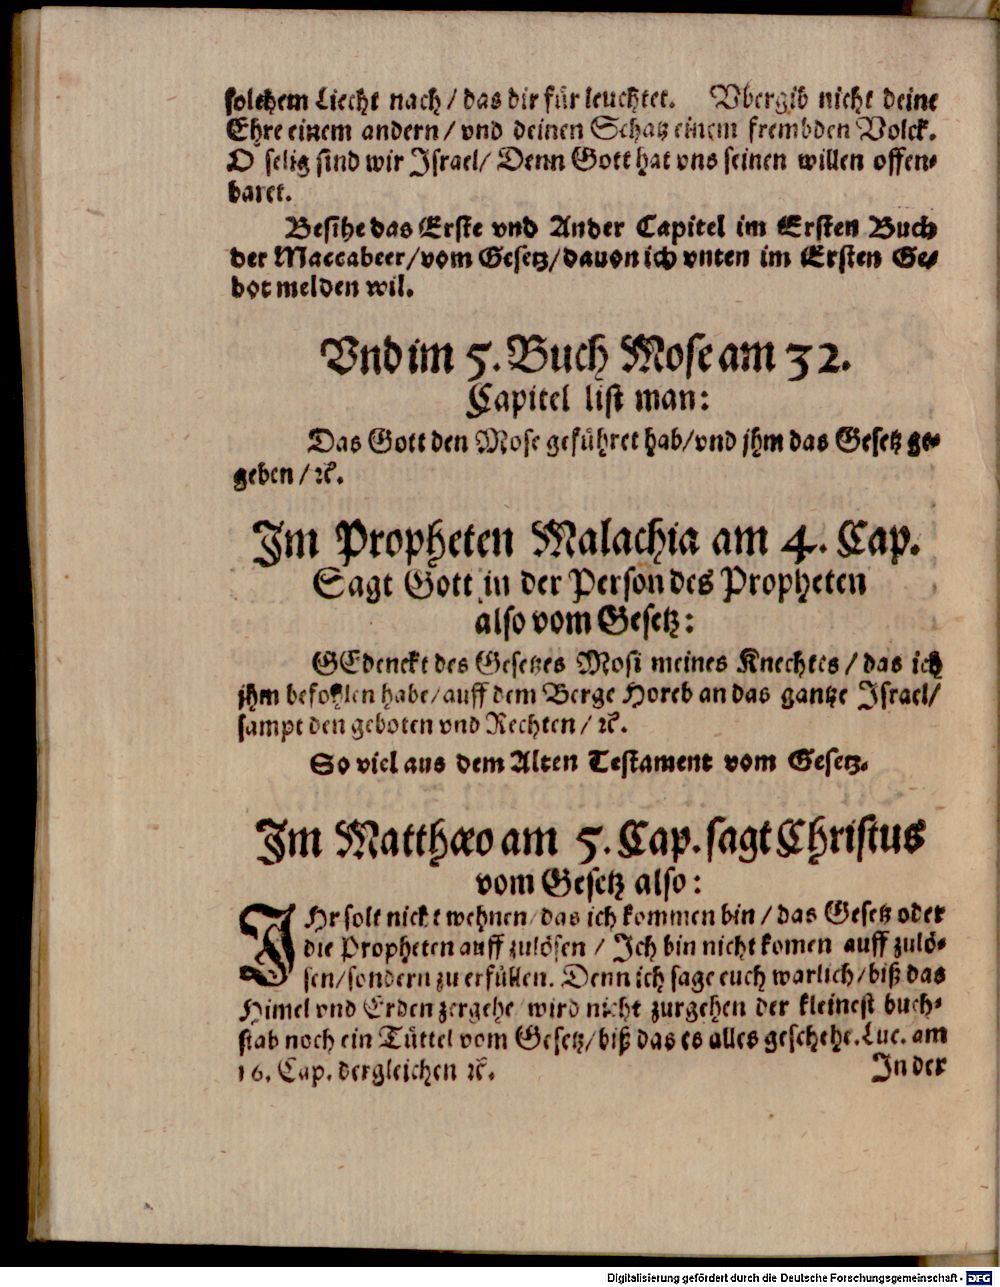 solchem Liecht nach / das dir für leuchtet. Vbergib nicht deine
Ehre einem andern / vnd deinen Schatz einem frembden Volck.
O selig sind wir Israel / Denn Gott hat vns seinen willen offen⸗
baret.
Besihe das Erste vnd Ander Capitel im Ersten Buch
der Maccabeer / vom Gesetz / dauon ich vnten im Ersten Ge⸗
bot melden wil.
Vnd im 5. Buch Mose am 32.
Capitel list man:
Das Gott den Mose geführet hab / vnd jhm das Gesetz ge⸗
geben / ꝛc.
Im Propheten Malachia am 4. Cap.
Sagt Gott in der Person des Propheten
also vom Gesetz:
GEdenckt des Gesetzes Mosi meines Knechtes / das ich
jhm befohlen habe / auff dem Berge Horeb an das gantze Israel /
sampt den geboten vnd Rechten / ꝛc.
So viel aus dem Alten Testament vom Gesetz.
Im Matthæo am 5. Cap. sagt Christus
vom Gesetz also:
IHr solt nicht wehnen / das ich kommen bin / das Gesetz oder
die Propheten auff zulösen / Ich bin nicht komen auff zulö⸗
sen / sondern zu erfüllen. Denn ich sage euch warlich / biß das
Himel vnd Erden zergehe / wird nicht zurgehen der kleinest buch⸗
stab noch ein Tüttel vom Gesetz / biß das es alles geschehe. Luc. am
16. Cap. dergleichen ꝛc.
In der
Digitalisierung gefördert durch die Deutsche Forschungsgemeinschaft - DFG